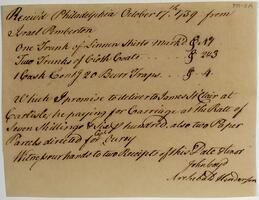 Receiv'd Philadelphia October 17th 1759 from
Israel Pemberton
One Trunk of Linnen Shirts mark'd
Two Trunks of Cloth Coats
1 Cask Cont'g 20 Bever Traps 4
Which I promise to deliver to James St Clair at
Carlisle, he paying for Carriage at the Rate of
Seven Shillings & Six p hundred, also two Paper
Parcels directed for
Witness our hands to two Receipts of this Date & Tenor
John
Archibald Henderson